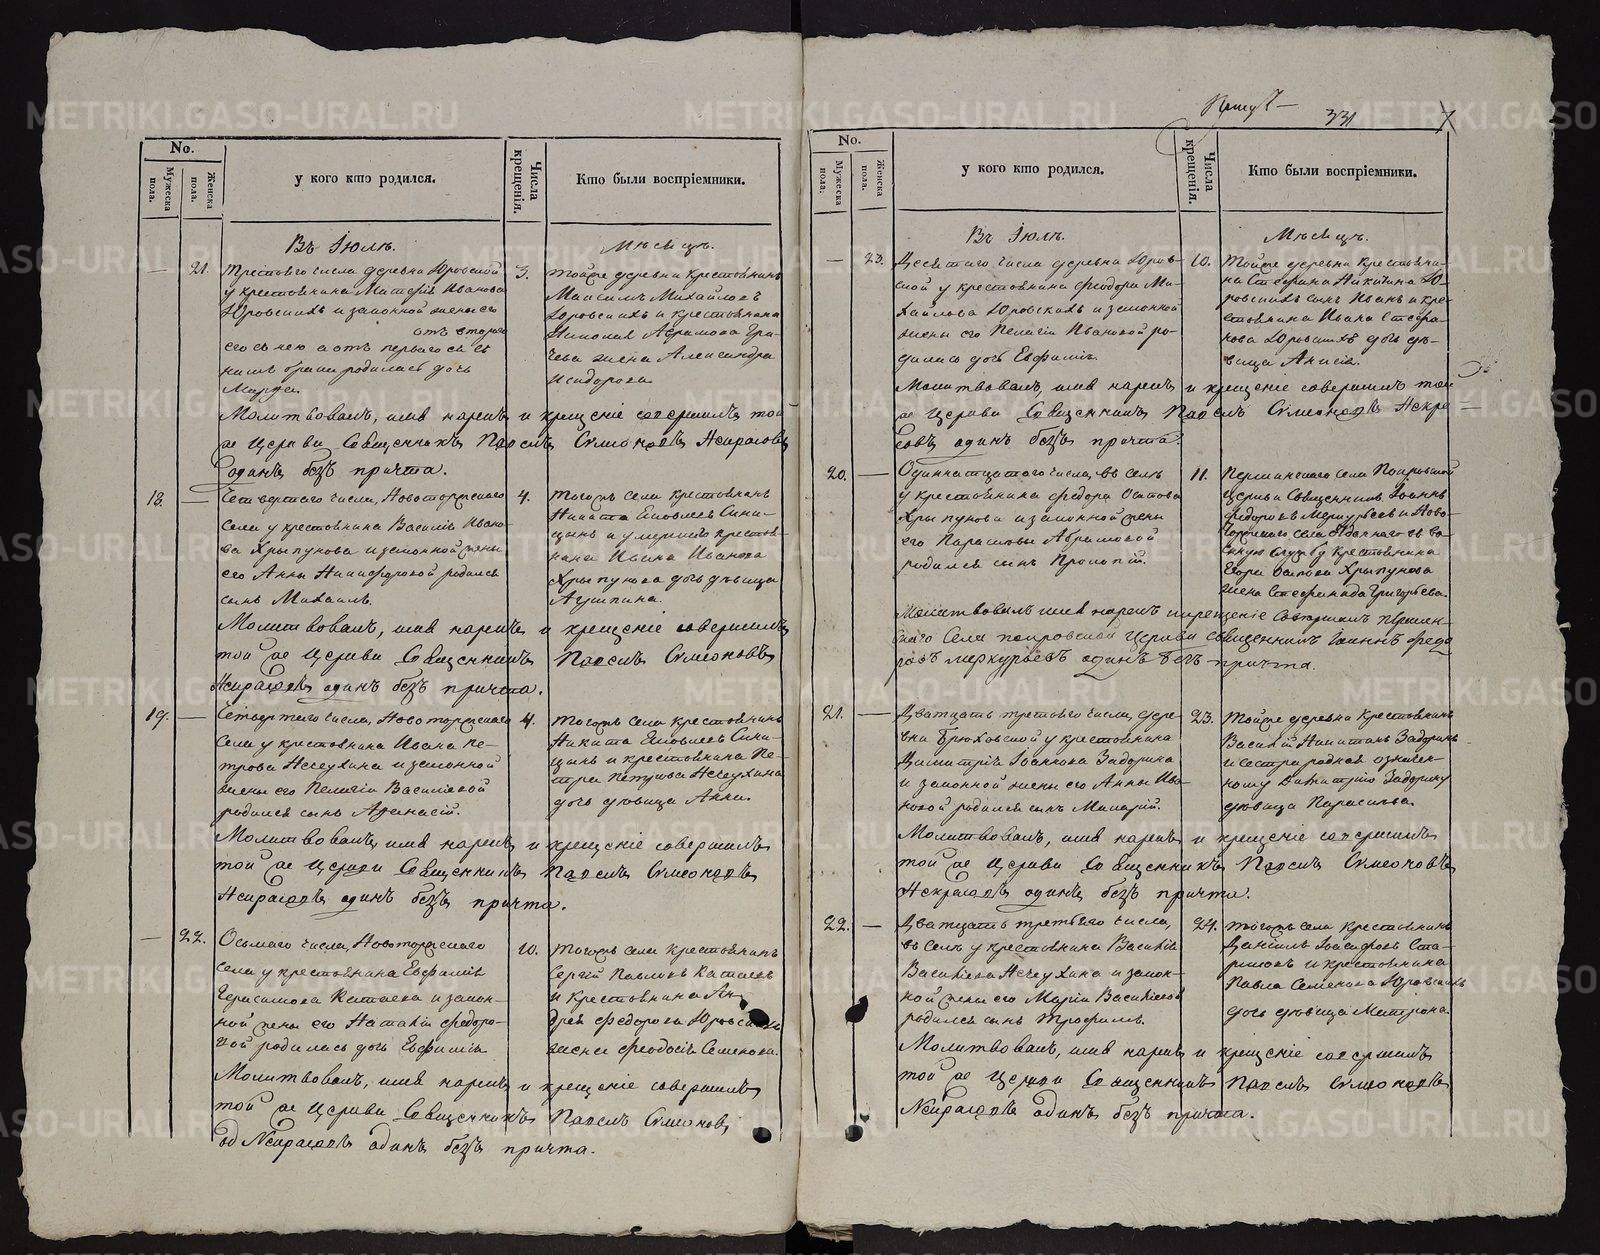 No.
Мужеска пола.
Женска пола.
у кого кто родился.
Числа крещенія.
Кто были воспріемники.
Въ Іюлѣ.
Мѣсяцѣ.
21.
третьяго числа деревни Юровской
у крестьянина Иванова
Юровскихъ и законной жены его
отъ втораго
его съ нею а отъ перваго съ
нимъ брака родилась дочь
3.
тойже деревни крестьянинъ
Максимъ Михайловъ
Юровскихъ и крестьянина
Николая Абрамова
жена Александра
Исидорова
Молитвовалъ, имя нарекъ и крещеніе совершилъ той
же Церкви Священникъ Павелъ Симеоновъ Некрасовъ
одинъ безъ причта.
18.
Четвертаго числа, Новоторжскаго
села у крестьянина Василія Ивано-
ва Хрыпунова и законной жены
его Анны Никифоровой родился
сынъ Михаилъ.
4.
тогожъ села крестьянинъ
Никита Яковлевъ Сини-
цынъ и умершаго крестья-
нина Ивана Иванова
Хрыпунова дочь дѣвица
Молитвовалъ, имя нарекъ и крещеніе совершилъ
той же Церкви Священникъ Павелъ Симеоновъ
Некрасовъ одинъ безъ причта.
19.
Четвертаго числа, Новоторжскаго
села у крестьянина Ивана Пе-
трова Нечеухина и законной
жены его Пелагіи Васильевой
родился сынъ Афанасій.
4.
тогожъ села крестьянинъ
Никита Яковлевъ Сини-
цынъ и крестьянина Пе-
тра Петрова Нечеухина
дочь дѣвица Анна.
Молитвовалъ, имя нарекъ и крещеніе совершилъ
той же Церкви Священникъ Павелъ Симеоновъ
Некрасовъ одинъ безъ причта.
22.
Осьмаго числа, Новоторжскаго
села у крестьянина Евфимія
Герасимова Катаева и закон-
ной жены его Наталіи Федоро-
вой родилась дочь Евфимія
10.
тогожъ села крестьянинъ
Сергій Павловъ Катаевъ
и крестьянина Ан-
дрея Федорова Юровскихъ
жена Феодосія Семенова.
Молитвовалъ, имя нарекъ и крещеніе совершилъ
той же Церкви Священникъ Павелъ Симеоновъ
Некрасовъ одинъ безъ причта.
331
No.
Мужеска пола.
Женска пола.
у кого кто родился.
Числа крещенія.
Кто были воспріемники.
Въ Іюлѣ.
Мѣсяцѣ.
23.
Десятаго числа деревни Юров-
ской у крестьянина Феодора Ми-
хайлова Юровскихъ и законной
жены его Пелагіи Ивановой ро-
дилась дочь Евфимія.
10.
Тойже деревни крестьяни-
на Стефана Никитина Ю-
ровскихъ сынъ Иванъ и кре-
стьянина Ивана Стефа-
нова Юровскихъ дочь дѣ-
вица Анисія.
Молитвовалъ, имя нарекъ и крещеніе совершилъ той
же Церкви Священникъ Павелъ Симеоновъ Некра-
совъ одинъ безъ причта.
20.
Одиннатцатаго числа, въ селѣ
у крестьянина Федора Осипова
Хрыпунова и законной жены
его Парасковьи Абрамовой
родился сынъ Прокопій.
11.
Першинскаго села Покровской
Церкви Священникъ Іоаннъ
Федоровъ Меркурьевъ и Ново-
торжскаго села Отданнаго въ во-
енную службу крестьянина
Егора Осипова Хрыпунова
жена Стефанида Григорьева.
Молитвовалъ имя нарекъ и крещеніе Совершилъ першин-
скаго Села покровской Церкви священникъ Іоаннъ Федо
ровъ меркурьевъ одинъ безъ причта.
21.
Дватцать третьяго числа, дере-
вни Брюховской у крестьянина
Димитрія Іоаннова Задорина
и законной жены его Анны Ива-
новой родился сынъ Макарій.
23.
Тойже деревни крестьянинъ
Василій Никитинъ Задоринъ
и сестра родная означен-
ному Димитрію Задорину
дѣвица Парасковья.
Молитвовалъ, имя нарекъ и крещеніе совершилъ
той же Церкви Священникъ Павелъ Симеоновъ
Некрасовъ одинъ безъ причта.
22.
Дватцать третьяго числа,
въ селѣ у крестьянина Василія
Васильева Нечеухина и закон-
ной жены его Маріи Васильевой
родился сынъ Трофимъ.
24.
тогожъ села крестьянинъ
Даніилъ Іоасафовъ Ста-
риковъ и крестьянина
Павла Семенова Юровскихъ
дочь дѣвица Матрона
Молитвовалъ, имя нарекъ и крещеніе совершилъ
той же Церкви Священникъ Павелъ Симеоновъ
Некрасовъ одинъ безъ причта.
METRIKI.GASO-URAL.RU